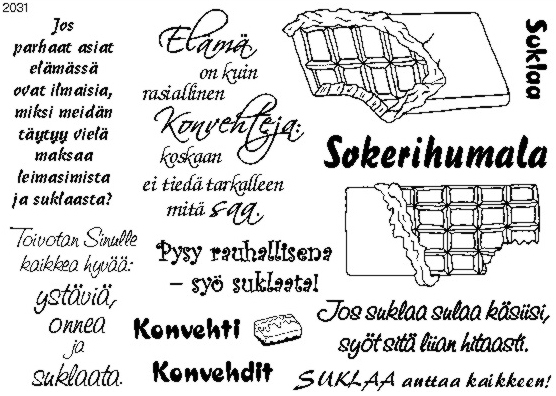 2031
Jos
parhaat asiat
elämässä
ovat ilmaisia,
miksi meidän
täytyy vielä
maksaa
leimasimista
ja suklaasta?
Elämä
on kuin
rasiallinen
Konvehteja:
koskaan
ei tiedä tarkalleen
mitä saa.
Suklaa
Sokerihumala
Toivotan Sinulle
kaikkea hyvää:
ystäviä,
onnea
ja
suklaata.
Pysy rauhallisena
– syö suklaata!
Konvehti
Konvehdit
Jos suklaa sulaa käsiisi,
syöt sitä liian hitaasti.
SUKLAA auttaa kaikkeen!